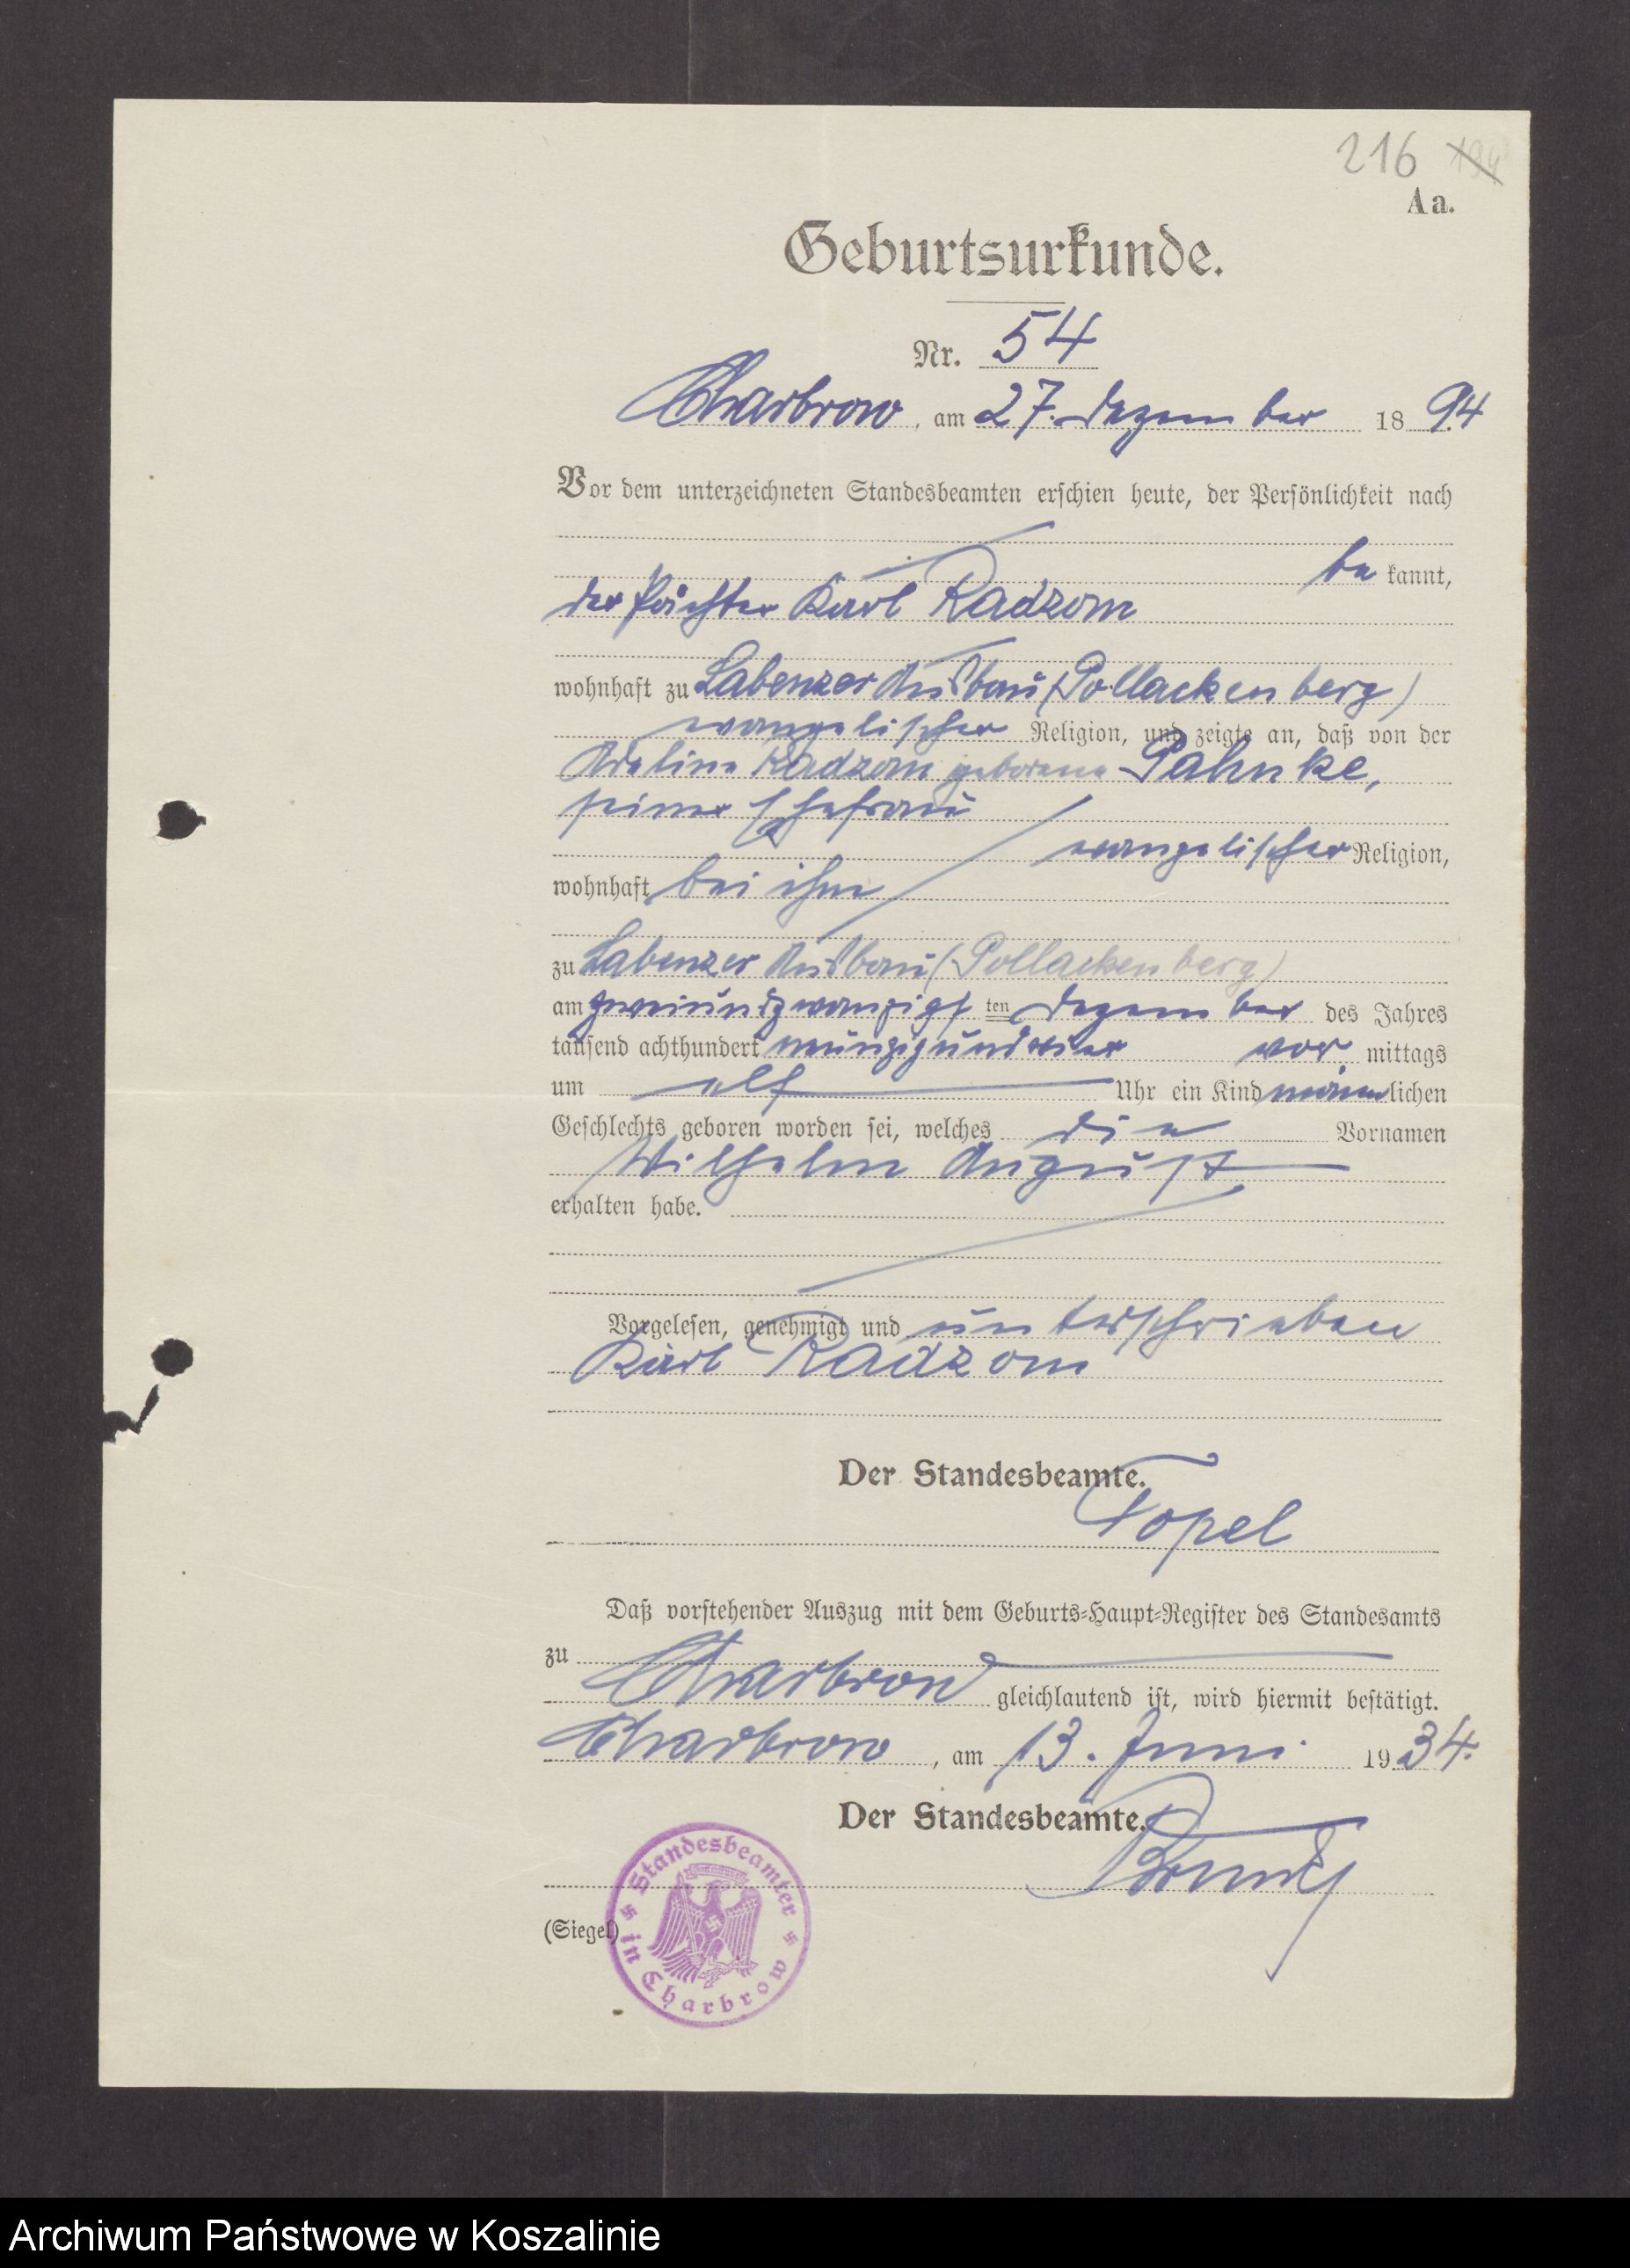 216 194
Aa.
Geburtsurkunde.
Nr. 54
Charbrow, am 27. Dezember 1894
Vor dem unterzeichneten Standesbeamten erschien heute, der Persönlichkeit nach
be kannt,
der Pächter Karl Radzom
wohnhaft zu Labenzer Ausbau (Pollackenberg)
evangelischer Religion, und zeigte an, daß von der
Adeline Radzom geborene Pahnke,
seiner Ehefrau
evangelischer Religion,
wohnhaft bei ihm
zu Labenzer Ausbau (Pollackenberg)
am zweiundzwanzigsten Dezember des Jahres
tausend achthundert neunzigundvier vor mittags
um elf Uhr ein Kind männlichen
Geschlechts geboren worden sei, welches die Vornamen
Wilhelm August
erhalten habe.
Vorgelesen, genehmigt und unterschrieben
Karl Radzom
Der Standesbeamte.
Topel
Daß vorstehender Auszug mit dem Geburts-Haupt-Register des Standesamts
zu
Charbrow gleichlautend ist, wird hiermit bestätigt.
Charbrow, am 13. Juni 1934.
Der Standesbeamte.
(Siegel)
Standesbeamter in Charbrow
Archiwum Państwowe w Koszalinie